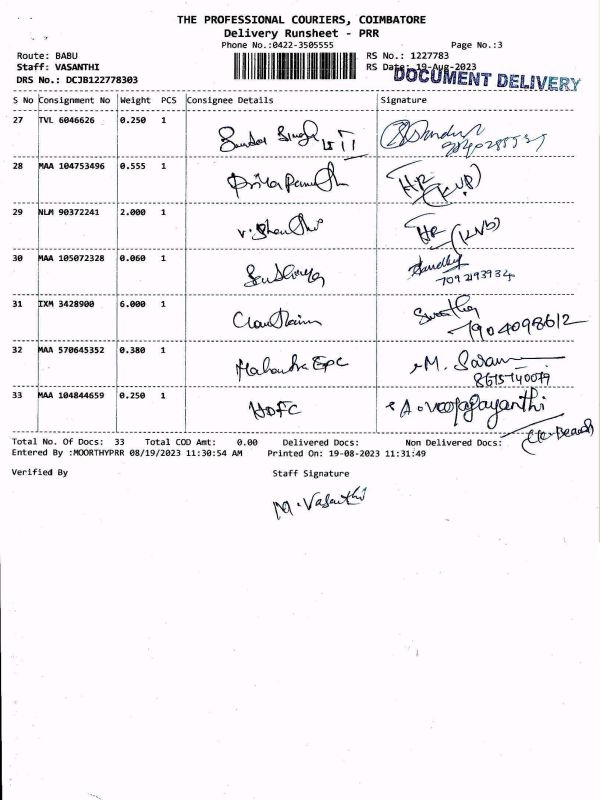 THE PROFESSIONAL COURIERS, COIMBATORE
Delivery Runsheet - PRR
Phone No.:0422-3505555 Page No.:3
Route: BABU RS No.: 1227783
Staff: VASANTHI RS Date: 19-Aug-2023
DRS No.: DCJB122778303 DOCUMENT DELIVERY
S No Consignment No Weight PCS Consignee Details Signature
27 TVL 6046626 0.250 1
28 MAA 104753496 0.555 1 HR
29 NLM 90372241 2.000 1 HR (KVB)
30 MAA 105072328 0.060 1
7092193934
31 IXM 3428900 6.000 1
7904098612
32 MAA 570645352 0.380 1 Mahendra Epc M. Saran
8615740079
33 MAA 104844659 0.250 1 HDFC
Total No. Of Docs: 33 Total COD Amt: 0.00 Delivered Docs: Non Delivered Docs:
Entered By :MOORTHYPRR 08/19/2023 11:30:54 AM Printed On: 19-08-2023 11:31:49
Verified By Staff Signature
M. Vasanthi